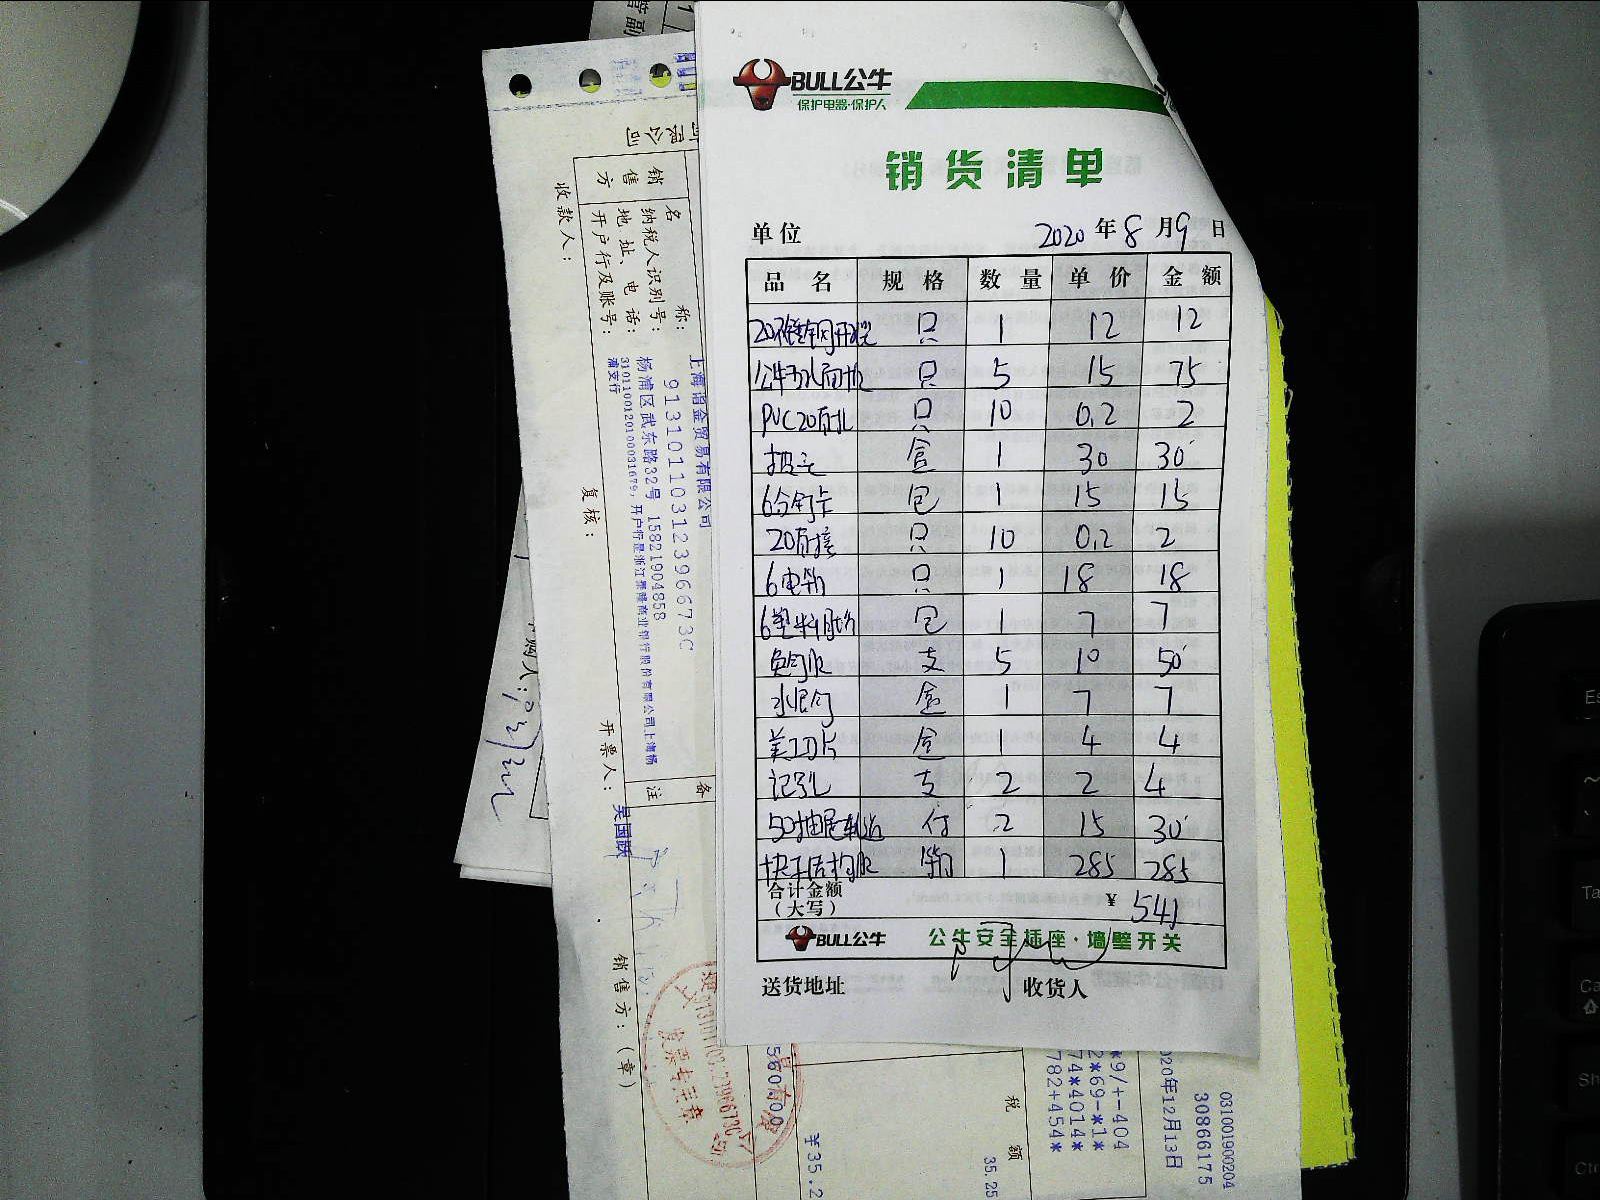 BULL公牛
保护电器·保护人
销货清单
单位 2020年8月9日
品名 规格 数量 单价 金额
20不锈钢开孔 只 1 12 12
公牛防水面板 只 5 15 75
PVC20直 只 10 0.2 2
批头 盒 1 30 30
6分钉卡 包 1 15 15
20直接 只 10 0.2 2
6电箱 只 1 18 18
6塑料 包 1 7 7
支 5 10 50
水泥钉 盒 1 7 7
美工刀片 盒 1 4 4
记号 支 2 2 4
50抽屉轨道 付 2 15 30
285 285
合计金额
(大写) ¥ 541
BULL公牛 公牛安全插座·墙壁开关
送货地址 收货人
销售方
名称: 上海谐金贸易有限公司
纳税人识别号: 91310110312396673C
地址、电话: 杨浦区武东路32号 15821904858
开户行及账号: 3101100120100031679, 开户行是浙江泰隆商业银行股份有限公司上海杨
浦支行
收款人:
复核:
开票人: 吴国跃
销售方:(章)
备注
发票专用章
税额
35.25
¥35.2
*9/+-404
2*69-*1*
74*4014*
782+454*
020年12月13日
30866175
031001900204
购人: